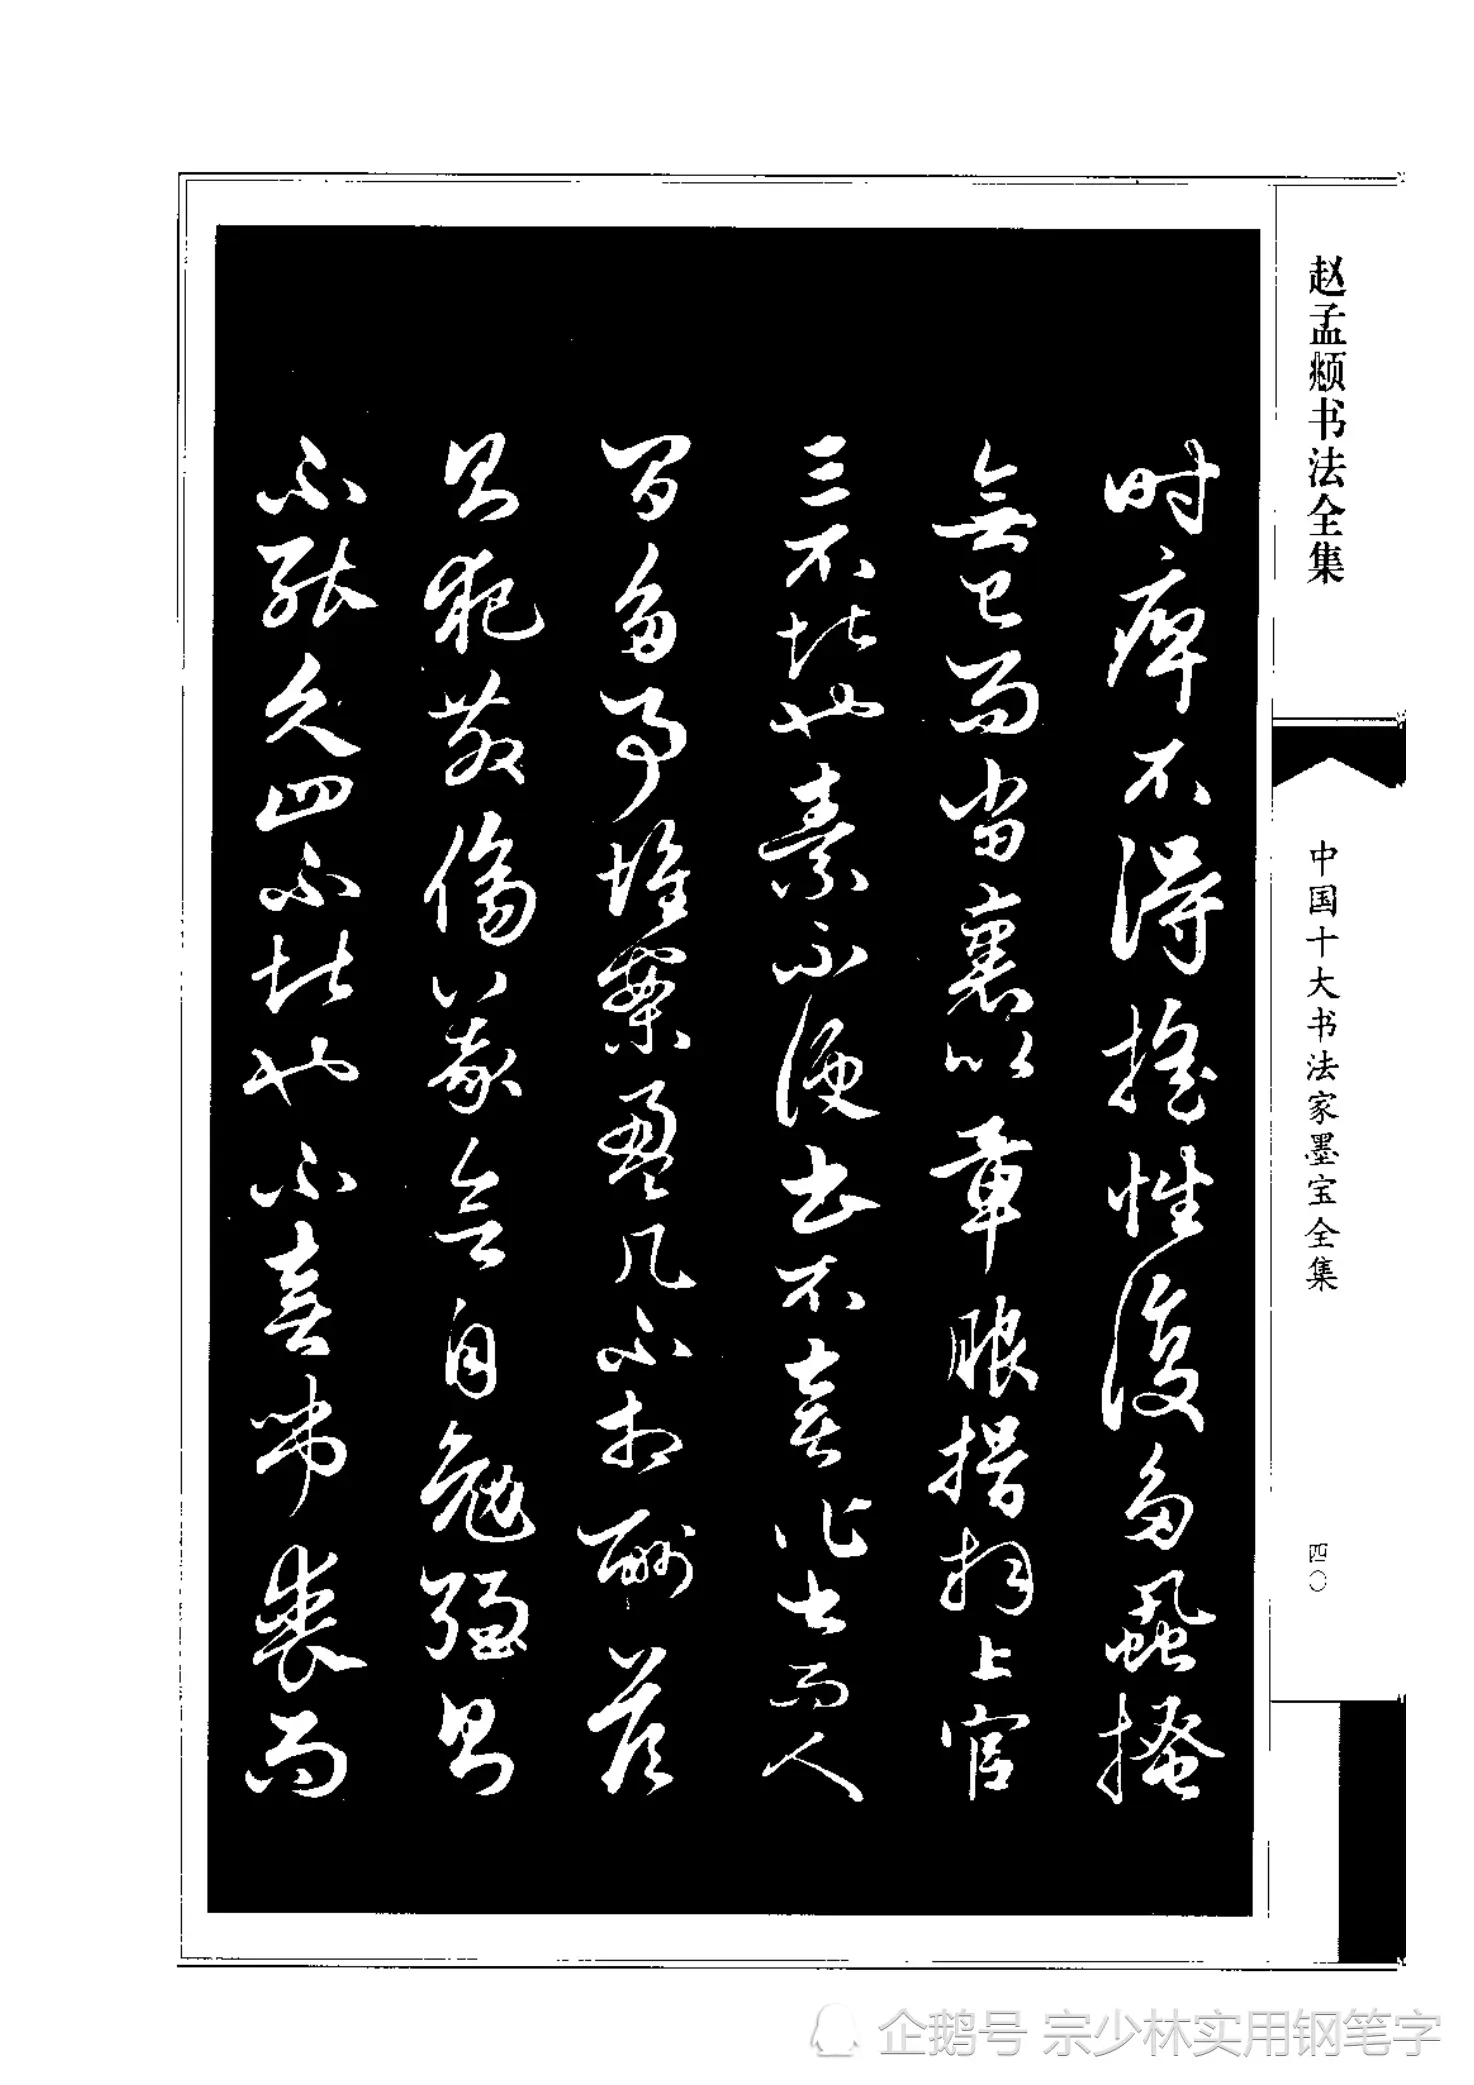 赵孟頫书法全集
中国十大书法家墨宝全集
四〇
时痺不得摇性復多蝨搔
無已而当裹以章服揖拜上官
三不堪也素不便书不喜作书而人
间多事堆案盈几不相酬答
则犯教傷義欲自勉强则
不能久四不堪也不喜弔喪而
企鹅号 宗少林实用钢笔字